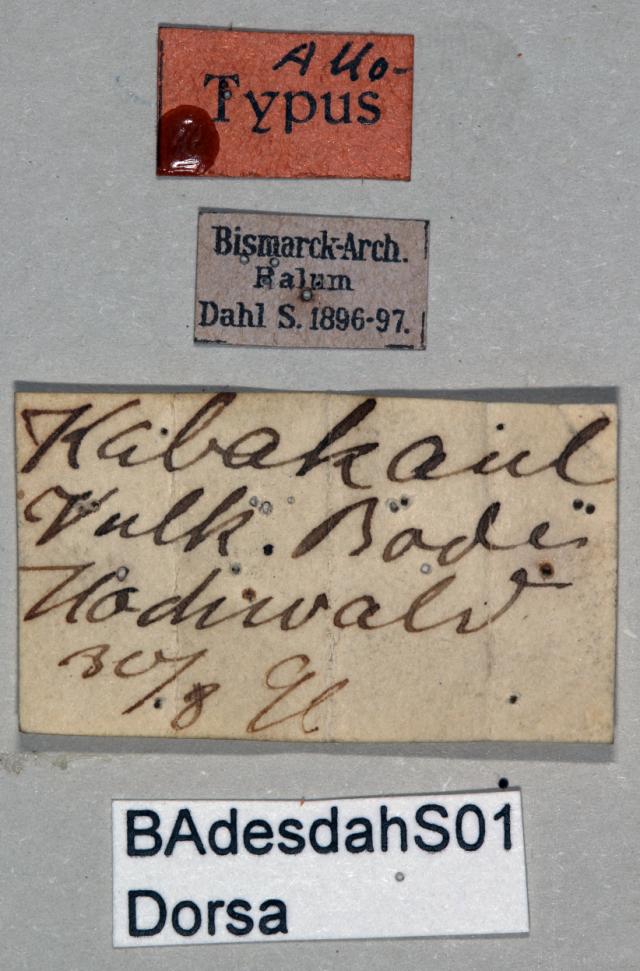 Allo-
Typus
Bismarck-Arch.
Ralum
Dahl S. 1896-97.
Kabakaul
Vulk. Boden
Hochwald
30/8 96
BAdesdahS01
Dorsa